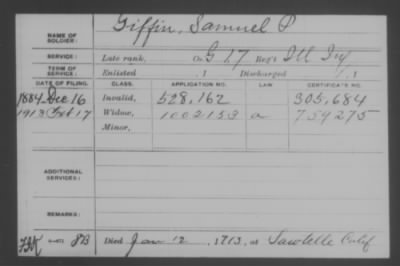 NAME OF SOLDIER: Giffin, Samuel P
SERVICE: Late rank, Co. G 17 Reg't Ill Inf
TERM OF SERVICE: Enlisted , 1 Discharged , 1
DATE OF FILING. CLASS. APPLICATION NO. LAW CERTIFICATE NO.
1884 Dec 16 Invalid, 528,162 305,684
1913 Feb 17 Widow, 1002153 a 759275
Minor,
ADDITIONAL SERVICES:
REMARKS:
Died Jan 12, 1913, at Sawtelle Calif